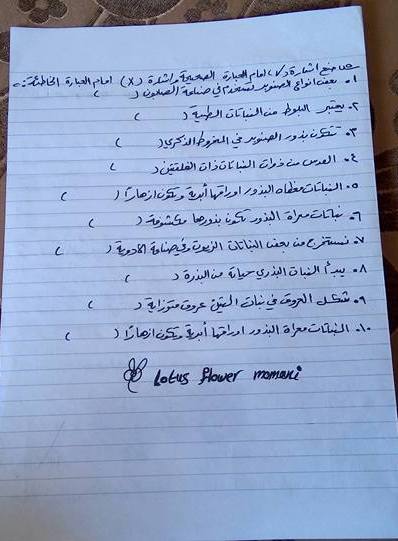 ضع اشارة (✓) امام العبارة الصحيحة واشارة (X) امام العبارة الخاطئة :-
١. بعض انواع الصنوبر تستخدم في صناعة الصابون ( )
٢. يعتبر البلوط من النباتات الطبية ( )
٣. تتكون بذور الصنوبر في المخروط الذكري ( )
٤. العدس من ذوات النباتات ذات الفلقتين ( )
٥. النباتات مغطاه البذور اوراقها أبرية وتكون ازهارًا ( )
٦. نباتات معراة البذور تكون بذورها مكشوفة ( )
٧. نستخرج من بعض النباتات الزيوت وفي صناعة الادوية ( )
٨. يبدأ النبات البذري حياته من البذرة ( )
٩. شكل العروق في نبات التين عروق متوازية ( )
١٠. النباتات معراة البذور اوراقها أبرية وتكون ازهارًا ( )
Lotus flower momani